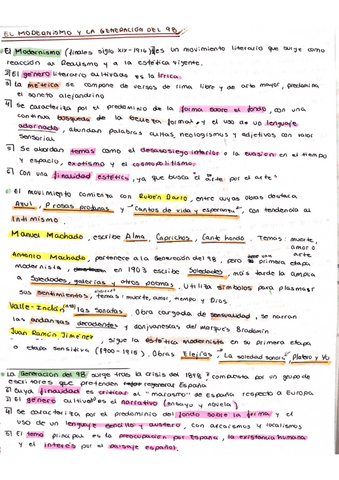 EL MODERNISMO Y LA GENERACIÓN DEL 98
El Modernismo (finales siglo XIX-1916) es un movimiento literario que surge como
reacción al Realismo y a la estética vigente.
2) El género literario cultivado es la lírica.
3) La métrica se compone de versos de rima libre y de arte mayor, predomina
el soneto alejandrino
4) Se caracteriza por el predominio de la forma sobre el fondo, con una
continua búsqueda de la belleza formal y el uso de un lenguaje
adornado, abundan palabras cultas, neologismos y adjetivos con valor
sensorial
5) Se abordan temas como el desasosiego interior o la evasión en el tiempo
y espacio, exotismo y el cosmopolitismo.
6) Con una finalidad estética, ya que busca el "arte por el arte"
El movimiento comienza con Rubén Darío, entre cuyas obras destaca
Azul, Prosas profanas y "Cantos de vida y esperanza", con tendencia al
intimismo.
Manuel Machado, escribe Alma, Caprichos, Cante hondo. Temas: muerte,
amor o
arte
Antonio Machado, pertenece a la Generación del 98, pero en una primera etapa
modernista, en 1903 escribe Soledades más tarde la amplia
a Soledades, galerías y otros poemas. Utiliza símbolos para plasmar
sus sentimientos, temas: muerte, amor, tiempo y Dios
Valle-Inclán las Sonatas. Obra cargada de sensualidad, se narran
las andanzas decadentes y donjuanescas del marqués Bradomín
Juan Ramón Jiménez, sigue la estética modernista en su primera etapa
o etapa sensitiva (1900-1915). Obras Elejías, La soledad sonora, Platero y Yo
La Generación del 98 surge tras la crisis del 1898, compuesta por un grupo de
escritores que pretenden regenerar España
2) Cuya finalidad es criticar el "marasmo" de España respecto a Europa
3) El género cultivado es el narrativo (ensayo y novela)
4) Se caracteriza por el predominio del fondo sobre la forma y el
uso de un lenguaje sencillo y austero, con arcaísmos y localismos
5) El tema principal es la preocupación por España, la existencia humana
y el interés por el paisaje español.